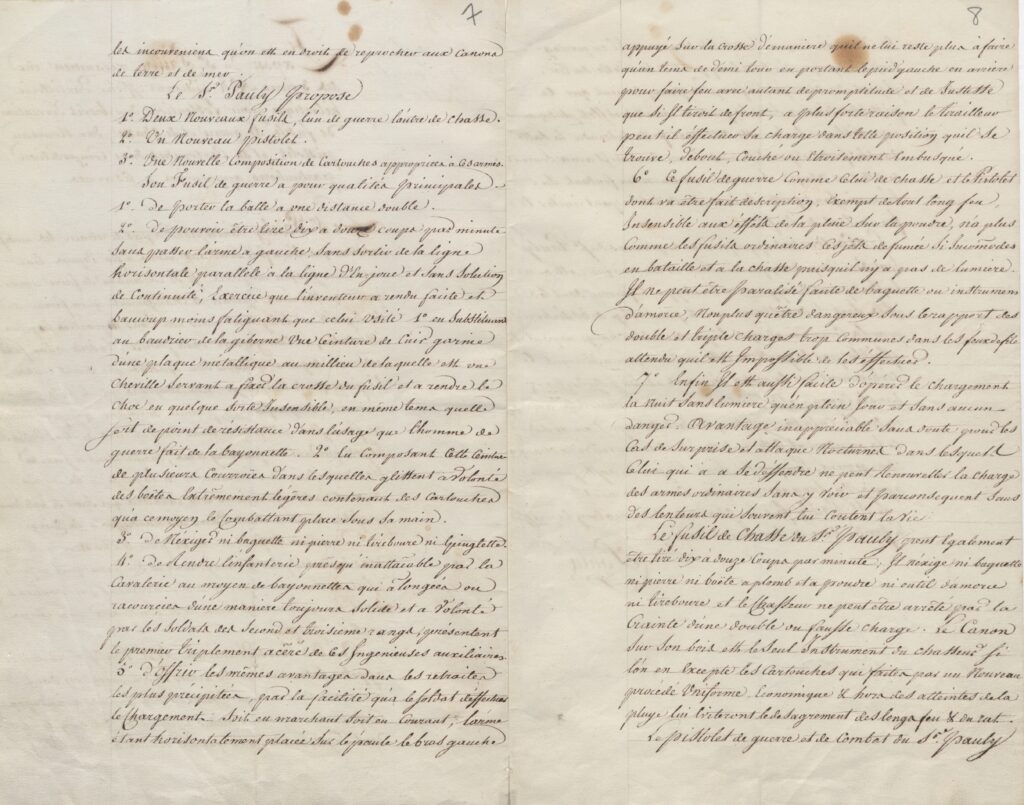 7
les inconveniens qu'on est en droit de reprocher aux Canons
de terre et de mer.
Le Sr. Pauly Propose
1º. Deux Nouveaux fusils, l'un de guerre l'autre de chasse.
2º. Un Nouveau pistolet.
3º. Une Nouvelle Composition de Cartouches appropriée à ces armes.
Son Fusil de guerre a pour qualités principales
1º. De porter la balle a une distance double.
2º. De pouvoir être tiré dix a douze coups par minute
sans passer l'arme a gauche, sans sortir de la ligne
horisontale parallele à la ligne d'En joue et sans solution
de Continuité, Exercice que l'inventeur a rendu facile et
beaucoup moins fatiguant que celui Usité 1º en substituant
au baudrier de la giberne une Ceinture de Cuir garnie
d'une plaque métallique au millieu de laquelle est une
Cheville servant a fixer la crosse du fusil et a rendre le
choc en quelque sorte Insensible, en même tems quelle
sert de point de résistance dans l'usage que l'homme de
guerre fait de la bayonnette. 2º. En Composant cette Ceinture
de plusieurs Courroies dans lesquelles glissent a Volonté
des boëtes Extrêmement légères contenant des Cartouches
qu'a ce moyen le Combattant place sous sa main.
3º. de N'exiger ni baguette ni pierre ni tirebourre ni Epinglette.
4º. de Rendre l'infanterie presqu'inattaicable par la
Cavalerie au moyen de bayonnettes qui alongées ou
racourcies d'une manière toujours solide et a Volonté
par les soldats des second et troisieme rangs, présentent
le premier triplement aceré de ces Ingenieuses auxiliaires.
5º. d'Offrir les mêmes avantages dans les retraites
les plus precipitées, par la facilité qu'a le soldat d'effectuer
le chargement. Soit en marchant soit en Courant, l'arme
étant horisontalement placée sur l'épaule le bras gauche
8
appuyé sur la crosse de maniere qu'il ne lui reste plus à faire
qu'un tems de demi tour en portant le pied gauche en arriere
pour faire feu avec autant de promptitude et de Justesse
que si Il tiroit de front, a plus forte raison le tirailleur
peut il effectuer sa charge dans telle position qu'il se
trouve, debout, couché ou étroitement Embusqué.
6º. Ce fusil de guerre comme Celui de chasse et le Pistolet
dont va être fait description, Exempt de tout long feu,
Insensible aux effets de la pluie sur la poudre, n'a plus
comme les fusils ordinaires ces jets de fumée si Incomodes
en bataille et a la chasse puisqu'il n'y a pas de lumiere.
Il ne peut être Paralisé faute de baguette ou instrument
d'amorce, Nonplus qu'être dangereux sous le rapport des
double et triple Charges trop communes dans les feux de file
attendu qu'il est Impossible de les effectuer.
7º. Enfin Il est aussi facile d'opérer le chargement
la nuit sans lumiere qu'en plein Jour et sans aucun
danger. Avantage inappréciable sans doute pour les
Cas de surprise et attaque Nocturnes dans lesquels
Celui qui a a se deffendre ne peut Renouveller la charge
des armes ordinaires sans y voir et par consequent sans
des lenteurs qui souvent lui coutent la Vie
Le fusil de chasse du Sr. Pauly peut également
être tiré dix à douze Coups par minute, Il n'exige ni baguette
ni pierre ni boëte a plomb et a poudre ni outil d'amorce
ni tirebourre et le Chasseur ne peut être arrêté par la
crainte d'une double ou fausse charge. Le Canon
sur son bois est le seul Instrument du chasseur si
l'on en Excepte les Cartouches qui faites par un Nouveau
procedé Uniforme, Economique & hors des atteintes de la
pluye lui éviteront le desagrement des longs feu & du rat.
Le pistolet de guerre et de Combat du Sr. Pauly